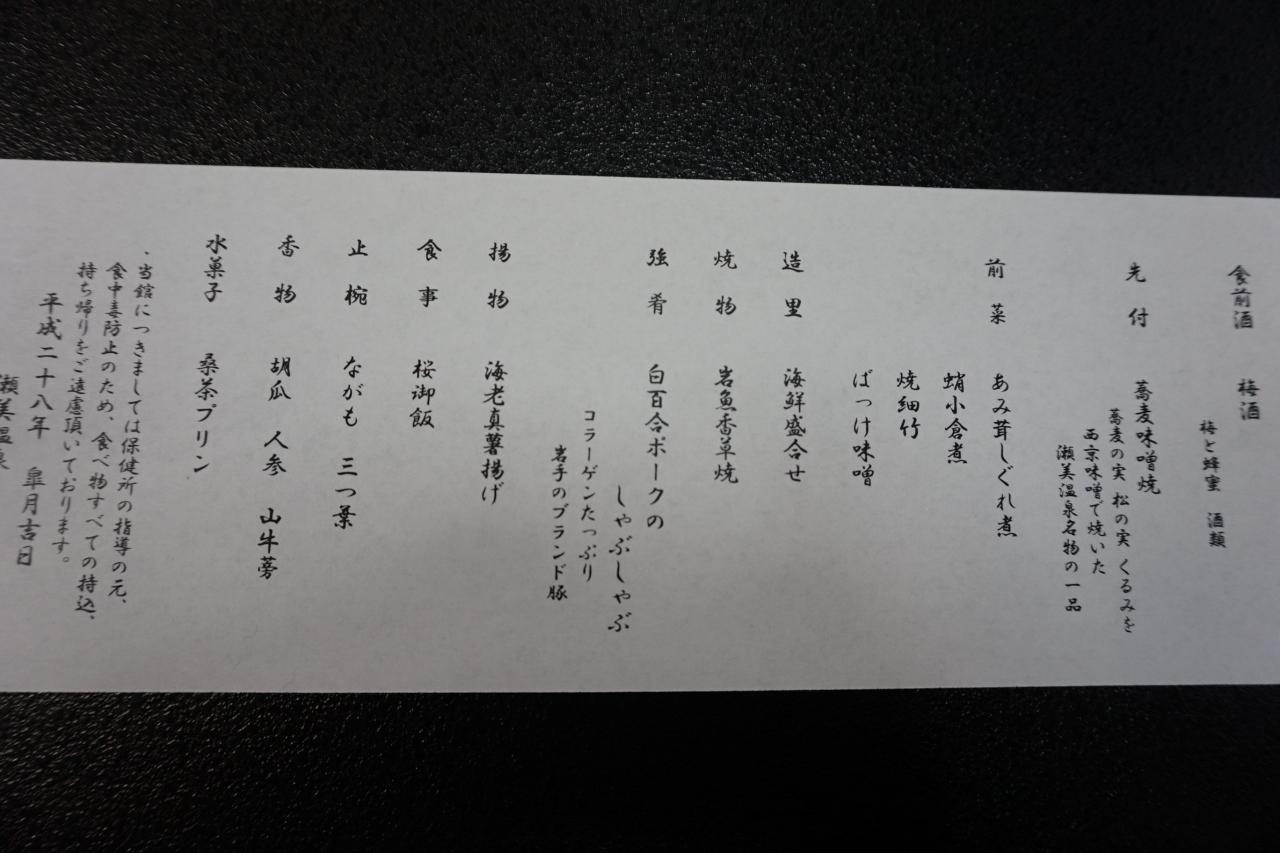 食前酒 梅酒
梅と蜂蜜 酒類
先付 蕎麦味噌焼
蕎麦の実 松の実 くるみを
西京味噌で焼いた
瀬美温泉名物の一品
前菜 あみ茸しぐれ煮
蛸小倉煮
焼細竹
ばっけ味噌
造里 海鮮盛合せ
焼物 岩魚香草焼
強肴 白百合ポークの
しゃぶしゃぶ
コラーゲンたっぷり
岩手のブランド豚
揚物 海老真薯揚げ
食事 桜御飯
止椀 ながも 三つ葉
香物 胡瓜 人参 山牛蒡
水菓子 桑茶プリン
・当館につきましては保健所の指導の元、
食中毒防止のため、食べ物すべての持込、
持ち帰りをご遠慮頂いております。
平成二十八年 皐月吉日
瀬美温泉